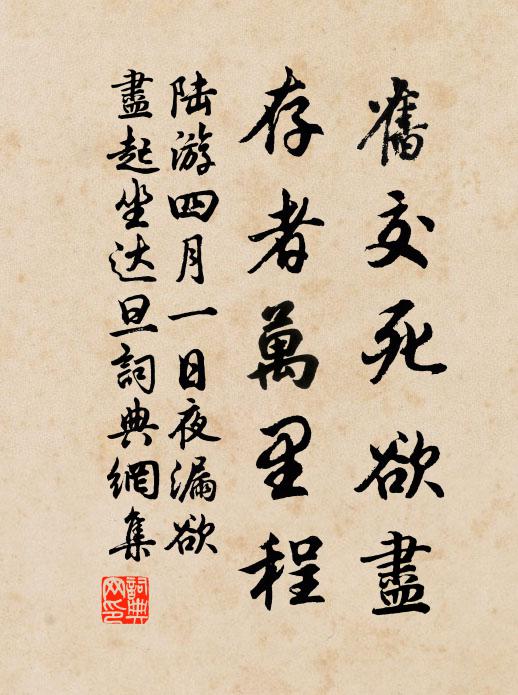 舊交死欲盡
存者萬里程
陆游四月一日夜漏欲
盡起坐达旦詞典網集
詞典网印